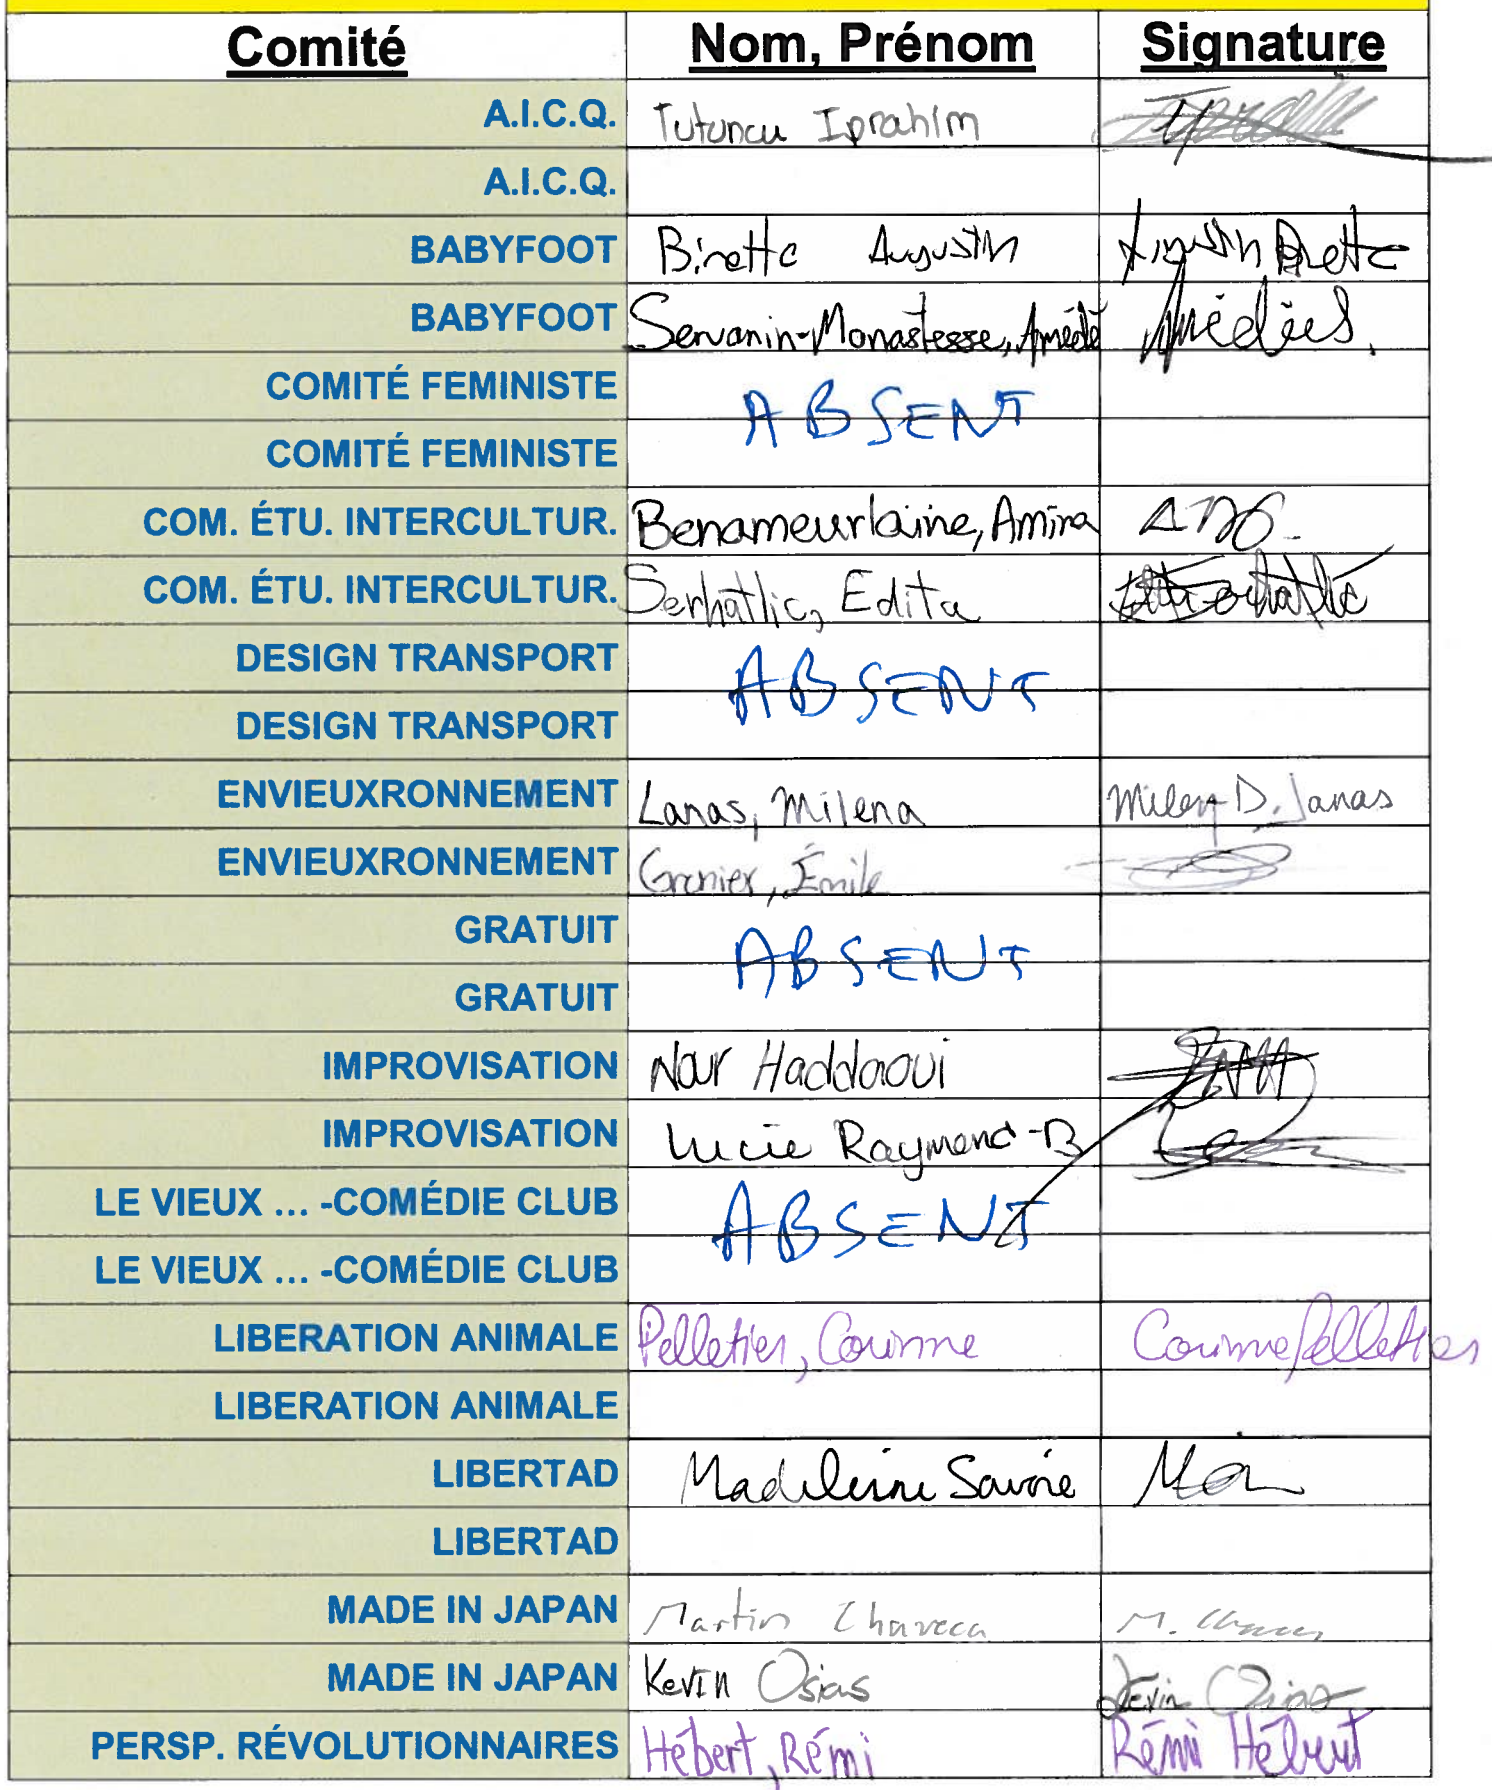 Comité Nom, Prénom Signature
A.I.C.Q. Tutuncu Iprahim
A.I.C.Q.
BABYFOOT Binette Augustin Augustin Binette
BABYFOOT Servanin-Monastesse, Amédé Amédée S.
COMITÉ FEMINISTE ABSENT
COMITÉ FEMINISTE
COM. ÉTU. INTERCULTUR. Benameurlaine, Amira
COM. ÉTU. INTERCULTUR. Serhatlic, Edita
DESIGN TRANSPORT ABSENT
DESIGN TRANSPORT
ENVIEUXRONNEMENT Lanas, Milena Milena D. Lanas
ENVIEUXRONNEMENT Grenier, Émile
GRATUIT ABSENT
GRATUIT
IMPROVISATION Nour Haddaoui
IMPROVISATION Lucie Raymond-B
LE VIEUX ... -COMÉDIE CLUB ABSENT
LE VIEUX ... -COMÉDIE CLUB
LIBERATION ANIMALE Pelletier, Corinne Corinne Pelletier
LIBERATION ANIMALE
LIBERTAD Madeleine Savoie
LIBERTAD
MADE IN JAPAN Martin Chaveca M.
MADE IN JAPAN Kevin Osias Kevin Osias
PERSP. RÉVOLUTIONNAIRES Hébert, Rémi Rémi Hébert